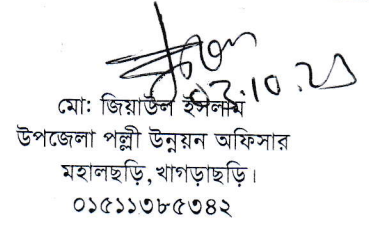 ০২.১০.২১
মো: জিয়াউল ইসলাম
উপজেলা পল্লী উন্নয়ন অফিসার
মহালছড়ি, খাগড়াছড়ি।
০১৫১১৩৮৫৩৪২